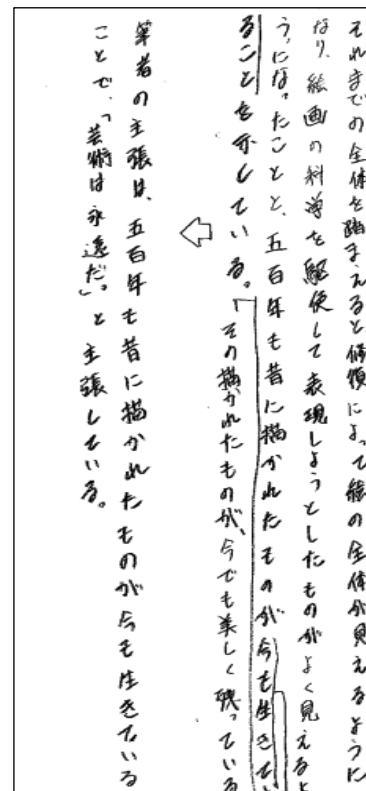 それまでの全体を踏まえると修復によって絵の全体が見えるように
なり、絵画の科学を駆使して表現しようとしたものがよく見えるよ
うになったことと、五百年も昔に描かれたものが今も生きてい
ることを示している。「その描かれたものが、今でも美しく残っている
筆者の主張は、五百年も昔に描かれたものが今も生きている
ことで、「芸術は永遠だ。」と主張している。